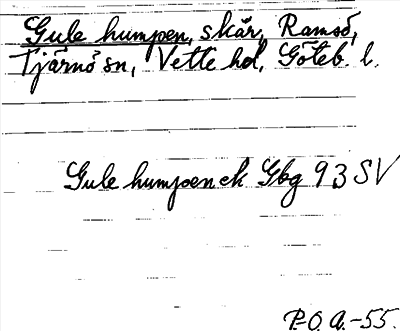 Gule humpen, skär, Ramsö,
Tjärnö sn, Vette hd, Göteb. l.
Gule humpen ek Gbg 93 SV
P.O.A.-55.